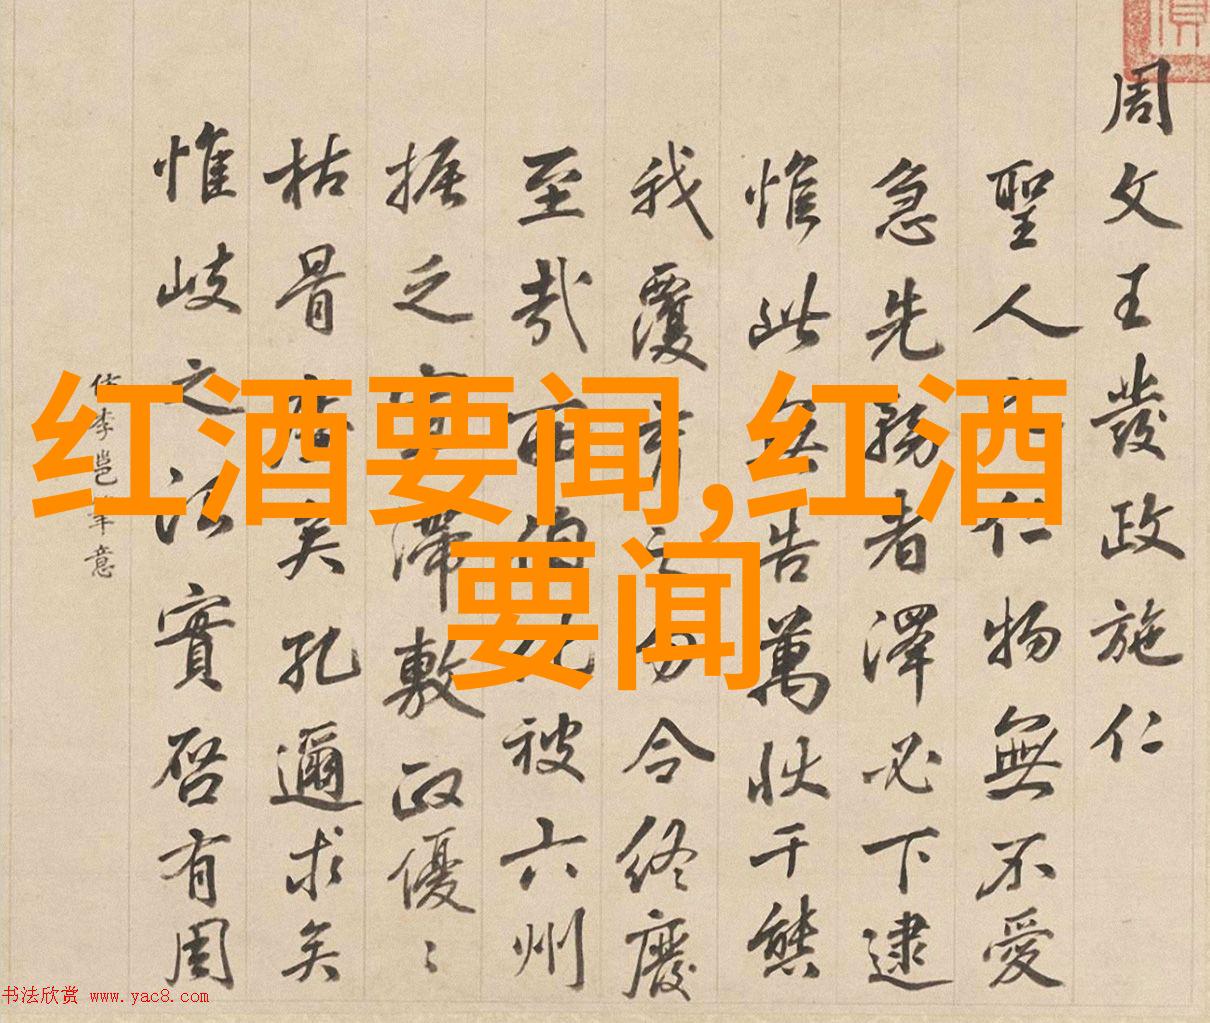 周文王發政施仁
聖人仁物無不愛
急先務者澤必下逮
惟此告萬狀千態
我覆令終慶
至哉被六州
振之滯敷政優〻
枯骨矣孔邇求矣
惟岐之治實啓有周
李邕筆意
红酒要闻,红酒
要闻
书法欣赏 www.yac8.com